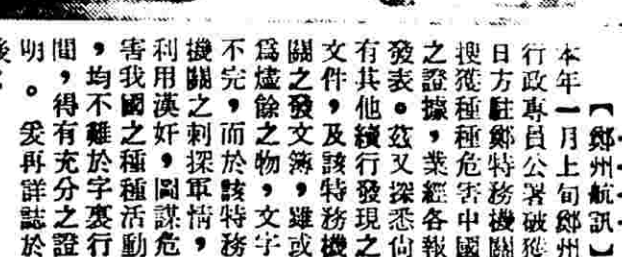 【鄭州航訊】
本年一月上旬鄭州
行政專員公署破獲
日方駐鄭特務機關
搜獲種種危害中國
之證據，業經各報
發表。茲又探悉尙
有其他續行發現之
文件，及該特務機
關之發文簿，雖或
爲燼餘之物，文字
不完，而於該特務
機關之刺探軍情，
利用漢奸，圖謀危
害我國之種種活動
，均不難於字裏行
間，得有充分之證
明。爰再詳誌於
後